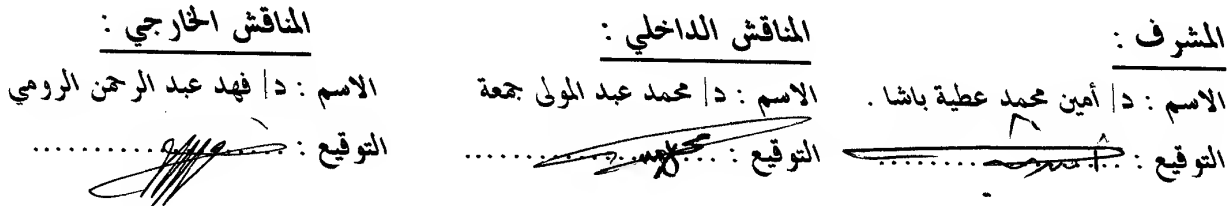 المشرف :
الاسم : د| أمين محمد عطية باشا .
التوقيع : ..................
المناقش الداخلي :
الاسم : د| محمد عبد المولى جمعة
التوقيع : ..................
المناقش الخارجي :
الاسم : د| فهد عبد الرحمن الرومي
التوقيع : ..................